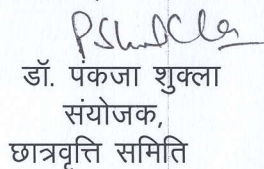 डॉ. पंकजा शुक्ला
संयोजक,
छात्रवृत्ति समिति